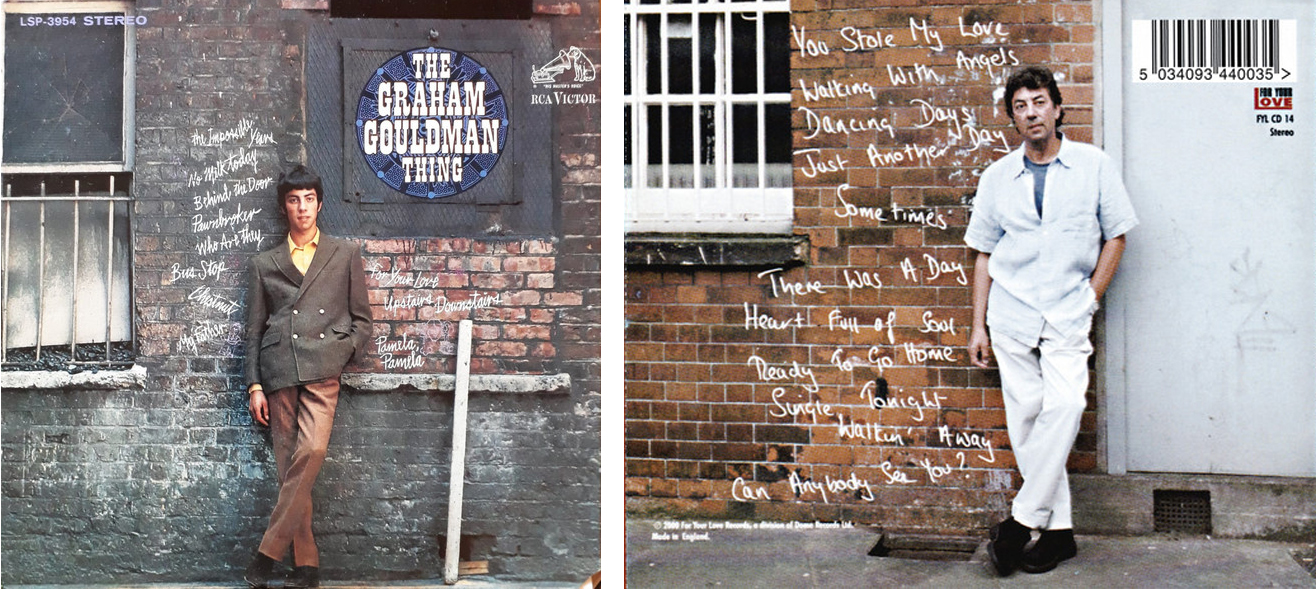 LSP-3954 STEREO
THE
GRAHAM
GOULDMAN
THING
"HIS MASTER'S VOICE"
RCA VICTOR
the Impossible
Years
No Milk today
Behind the Door
Pawnbroker
Who Are they
Bus Stop
Chestnut
My Father
For Your Love
Upstairs Downstairs
Pamela,
Pamela
You Stole My Love
Walking With Angels
Dancing Days
Just Another Day
Sometimes
There Was A Day
Heart Full of Soul
Ready To Go Home
Single Tonight
Walkin' Away
Can Anybody See You?
© 2000 For Your Love Records, a division of Dome Records Ltd.
Made in England.
5 034093 440035 >
FOR YOUR
LOVE
FYL CD 14
Stereo